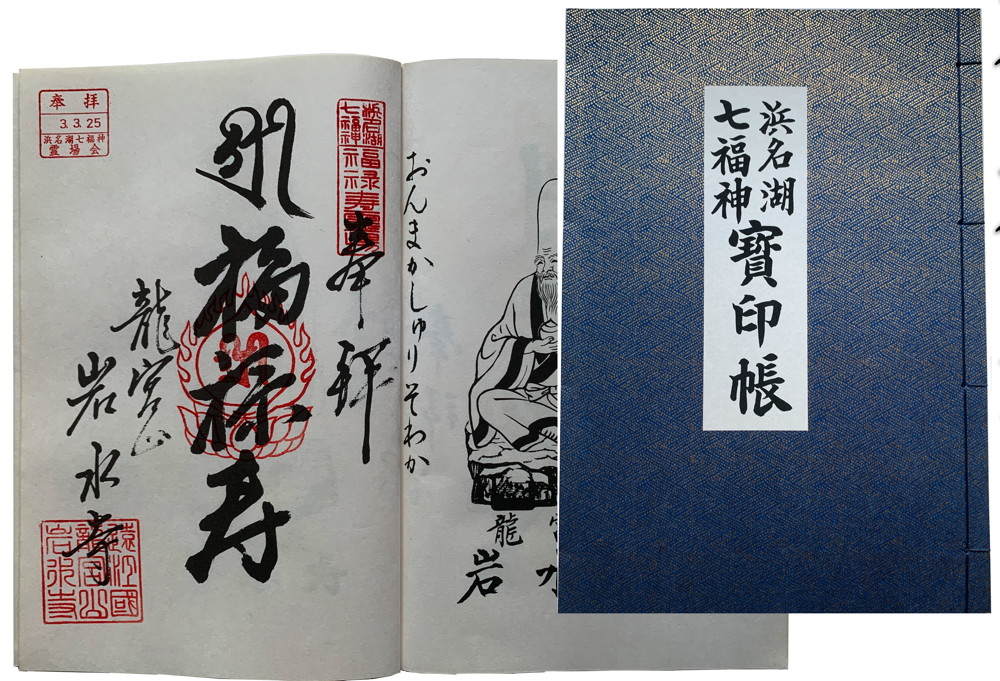 奉拝
3.3.25
浜名湖七福神
霊場会
浜名湖
七福神
福禄寿
奉拝
福禄寿
龍宮山
岩水寺
遠江國
龍宮山
岩水寺
おんまかしゅりそわか
龍
岩
浜名湖
七福神
寶印帳